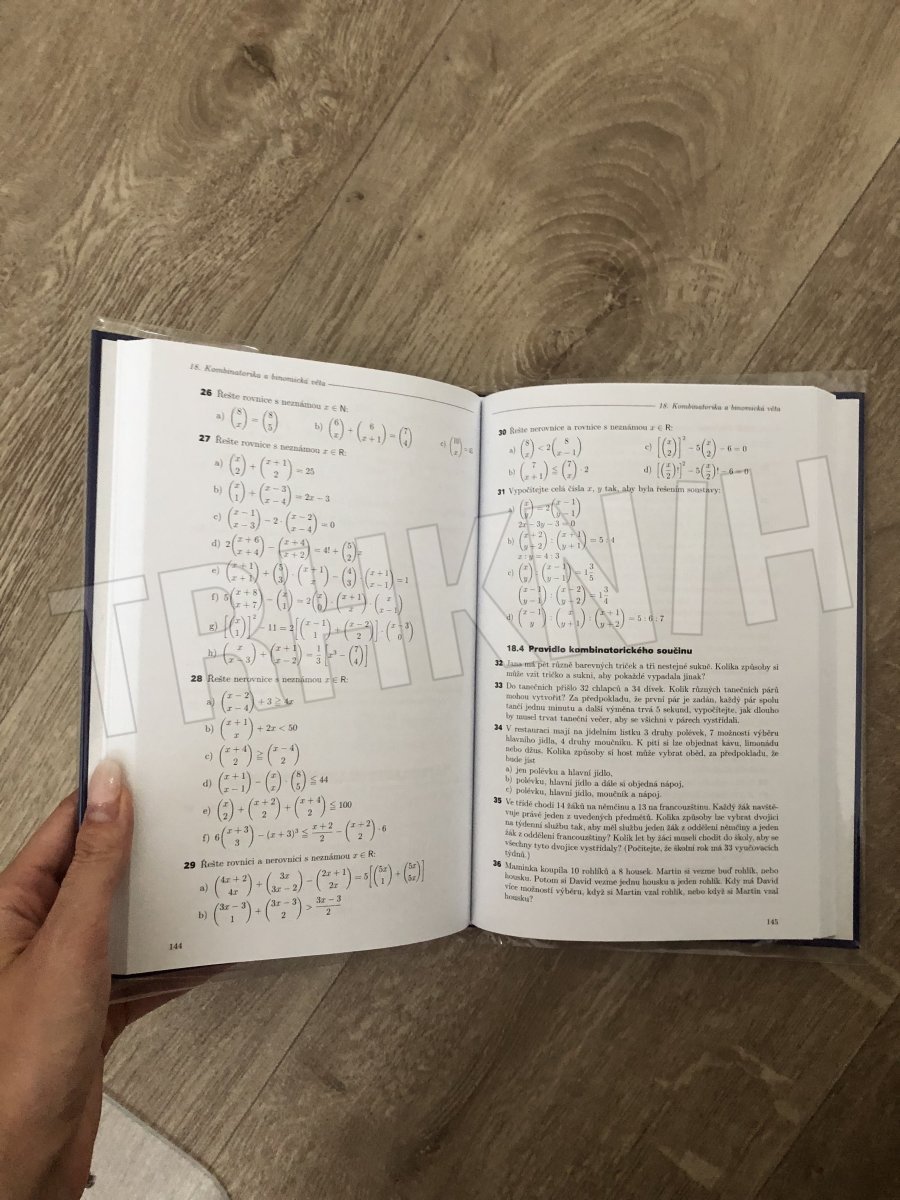 18. Kombinatorika a binomická věta
26 Řešte rovnice s neznámou x ∈ N:
a) (8 x) = (8 5) b) (6 x) + (6 x+1) = (7 4) c) (10 x) =
27 Řešte rovnice s neznámou x ∈ R:
a) (x 2) + (x+1 2) = 25
b) (x 1) + (x−3 x−4) = 2x − 3
c) (x−1 x−3) − 2 · (x−2 x−4) = 0
d) 2(x+6 x+4) − (x+4 x+2) = 4! + (5 2)x
e) (x+1 x+1) + (5 3) · (x+1 x) − (4 3) · (x+1 x−1) = 1
f) 5(x+8 x+7) − (x 1) = 2(x 0) · (x+1 x) · (x x−1)
g) [(x 1)]² − 11 = 2[(x−1 1) + (x−2 2)] · (x−3 0)
h) (x x−3) + (x+1 x−2) = 1/3 [x³ − (7 4)]
28 Řešte nerovnice s neznámou x ∈ R:
a) (x−2 x−4) + 3 ≧ 4x
b) (x+1 x) + 2x < 50
c) (x+4 2) ≧ (x−4 2)
d) (x+1 x−1) − (x x) · (8 5) ≦ 44
e) (x 2) + (x+2 2) + (x+4 2) ≦ 100
f) 6(x+3 3) − (x+3)³ ≦ x+2/2 − (x+2 2) · 6
29 Řešte rovnici a nerovnici s neznámou x ∈ R:
a) (4x+2 4x) + (3x 3x−2) − (2x+1 2x) = 5[(5x 1) + (5x 5x)]
b) (3x−3 1) + (3x−3 2) > 3x−3/2
144
18. Kombinatorika a binomická věta
30 Řešte nerovnice a rovnice s neznámou x ∈ R:
a) (8 x) < 2(8 x−1) c) [(x 2)]² − 5(x 2) − 6 = 0
b) (7 x+1) ≦ (7 x) · 2 d) [(x 2)!]² − 5(x 2)! − 6 = 0
31 Vypočítejte celá čísla x, y tak, aby byla řešením soustavy:
a) (x y) = 2(x−1 y−1)
2x − 3y − 3 = 0
b) (x+2 y+2) : (x+1 y+1) = 5 : 4
x : y = 4 : 3
c) (x y) : (x−1 y−1) = 1 3/5
(x−1 y−1) : (x−2 y−2) = 1 3/4
d) (x−1 y) : (x y+1) : (x+1 y+2) = 5 : 6 : 7
18.4 Pravidlo kombinatorického součinu
32 Jana má pět různě barevných triček a tři nestejné sukně. Kolika způsoby si
může vzít tričko a sukni, aby pokaždé vypadala jinak?
33 Do tanečních přišlo 32 chlapců a 34 dívek. Kolik různých tanečních párů
mohou vytvořit? Za předpokladu, že první pár je zadán, každý pár spolu
tančí jednu minutu a další výměna trvá 5 sekund, vypočítejte, jak dlouho
by musel trvat taneční večer, aby se všichni v párech vystřídali.
34 V restauraci mají na jídelním lístku 3 druhy polévek, 7 možností výběru
hlavního jídla, 4 druhy moučníku. K pití si lze objednat kávu, limonádu
nebo džus. Kolika způsoby si host může vybrat oběd, za předpokladu, že
bude jíst
a) jen polévku a hlavní jídlo,
b) polévku, hlavní jídlo a dále si objedná nápoj,
c) polévku, hlavní jídlo, moučník a nápoj.
35 Ve třídě chodí 14 žáků na němčinu a 13 na francouzštinu. Každý žák navště-
vuje právě jeden z uvedených předmětů. Kolika způsoby lze vybrat dvojici
na týdenní službu tak, aby měl službu jeden žák z oddělení němčiny a jeden
žák z oddělení francouzštiny? Kolik let by žáci museli chodit do školy, aby se
všechny tyto dvojice vystřídaly? (Počítejte, že školní rok má 33 vyučovacích
týdnů.)
36 Maminka koupila 10 rohlíků a 8 housek. Martin si vezme buď rohlík, nebo
housku. Potom si David vezme jednu housku a jeden rohlík. Kdy má David
více možností výběru, když si Martin vzal rohlík, nebo když si Martin vzal
housku?
145
TRHKNIH